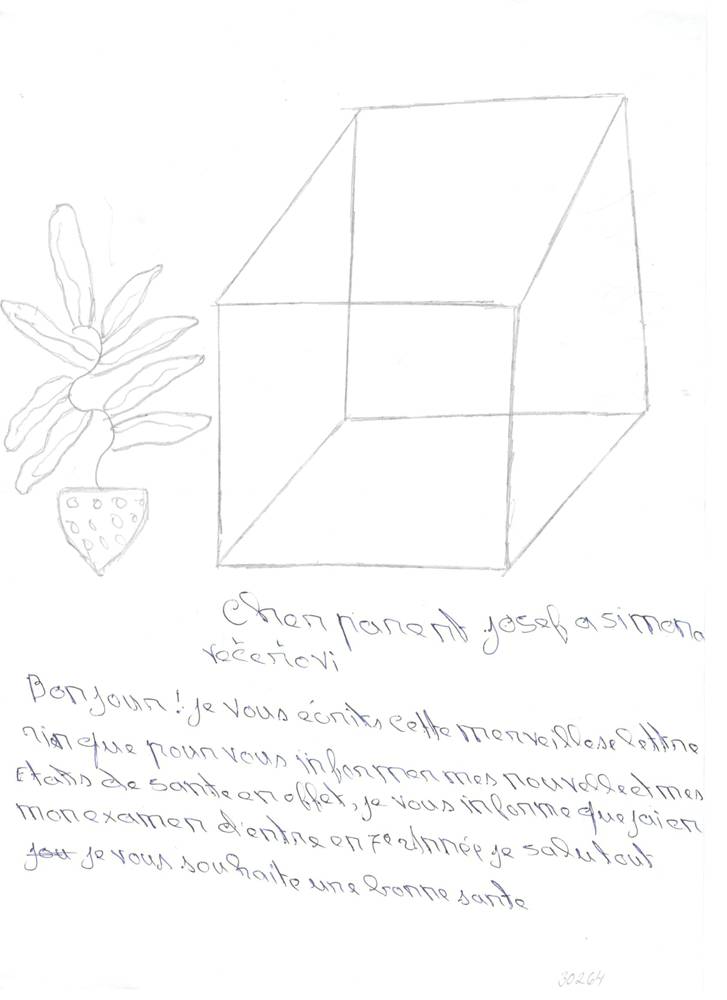 Cher parent josef a simona
večeřovi
Bonjour! je vous écrits cette merveillese lettre
rien que pour vous informer mes nouvelle et mes
Etats de sante en effet, je vous informe que j'ai en
mon examen d'entre en 7e année je salu tout
je vous souhaite une bonne sante
30264